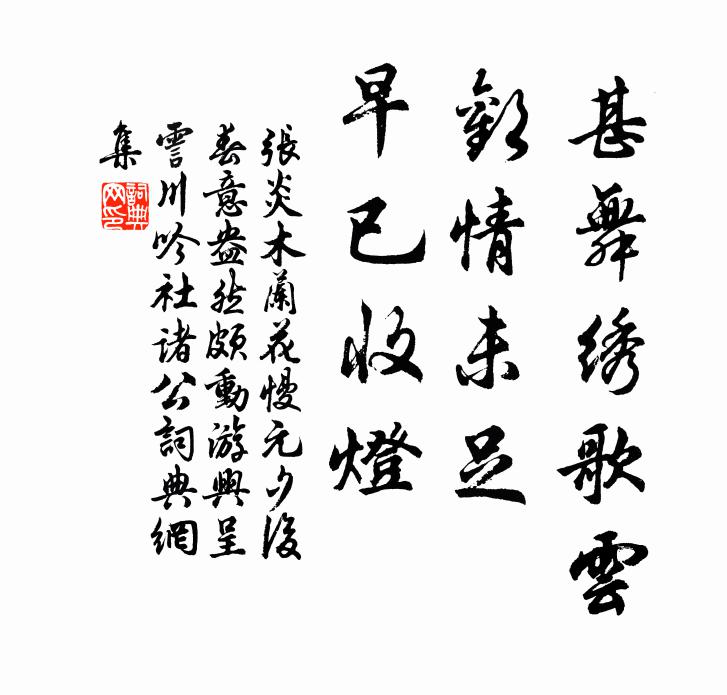 甚舞绣歌雲
歡情未足
早已收燈
張炎木蘭花慢元夕後
春意盎然頗動游興呈
霅川吟社诸公詞典網
集
詞典
网印